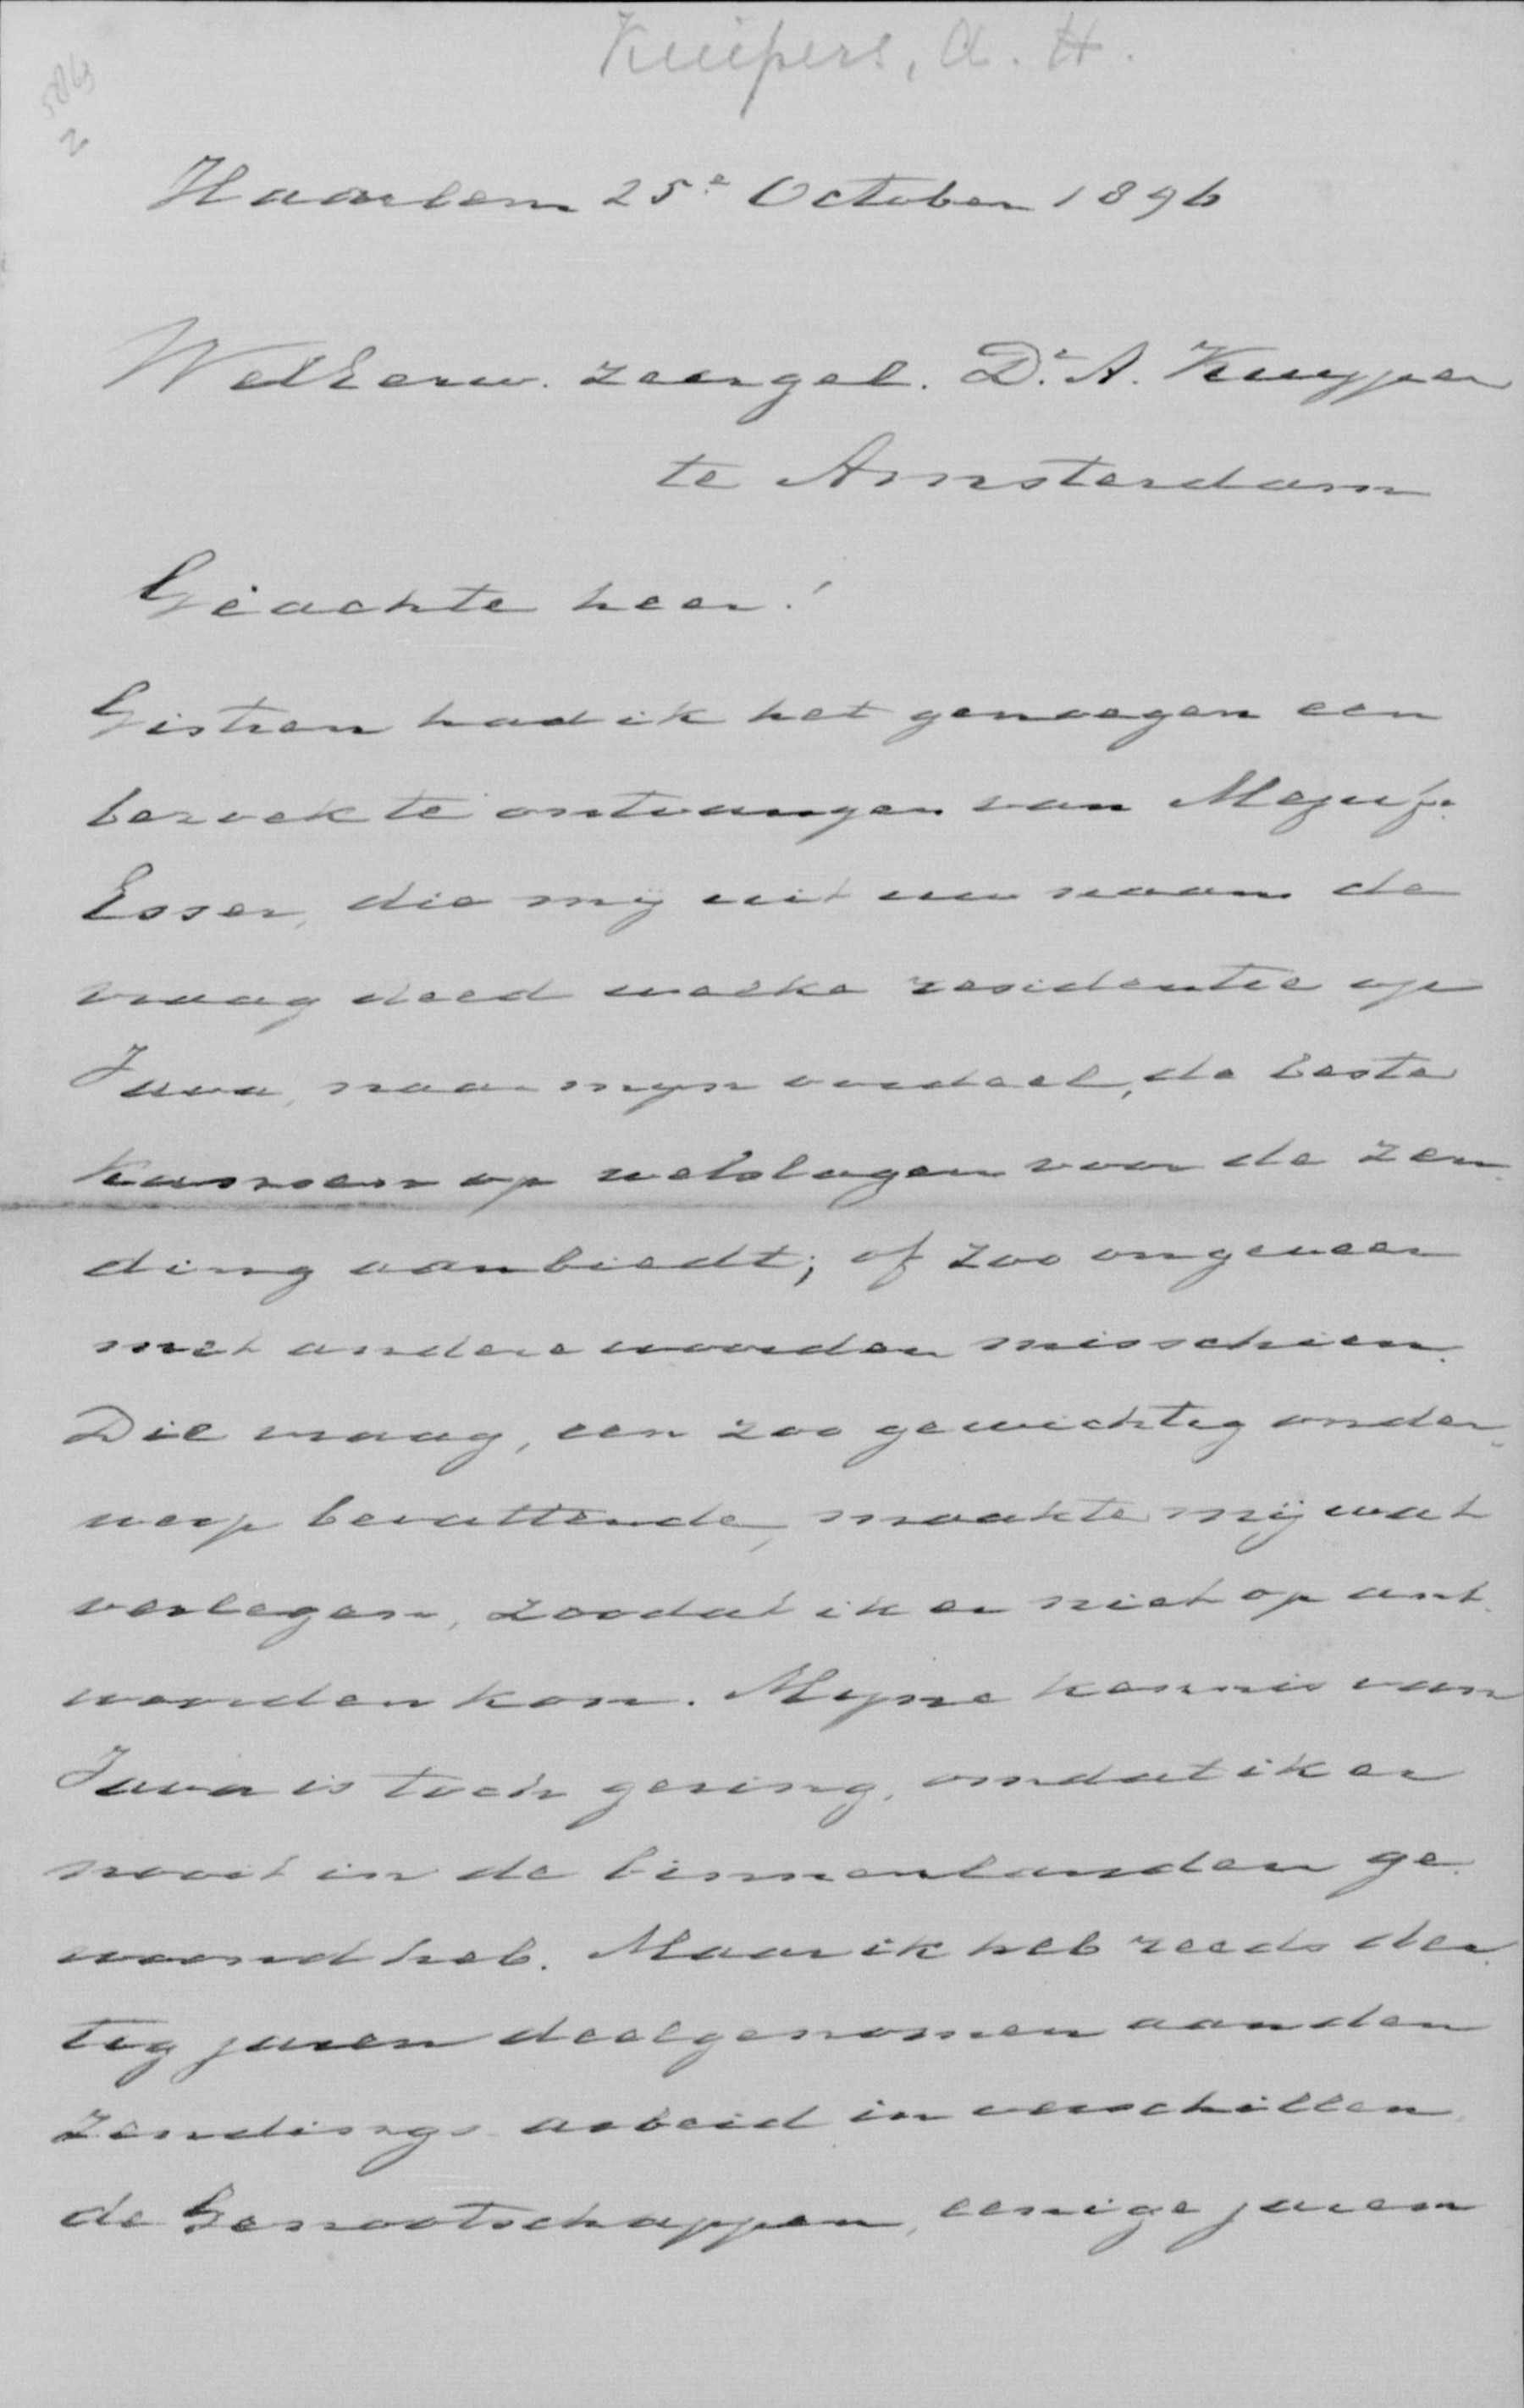 Kuipers, A. H.
5869
2
Haarlem 25e October 1896
WelEerw. zeergel. Dr. A. Kuyper
te Amsterdam
Geachte heer!
Gistren had ik het genoegen een
bezoek te ontvangen van Mejufr.
Esser, die mij uit uw naam de
vraag deed welke residentie op
Java, naar mijn oordeel, de beste
kansen op welslagen voor de zen-
ding aanbiedt; of zoo ongeveer
met andere woorden misschien.
Die vraag, een zoo gewichtig onder-
werp bevattende, maakte mij wat
verlegen, zoodat ik er niet op ant-
woorden kon. Mijne kennis van
Java is toch gering, omdat ik er
nooit in de binnenlanden ge-
woond heb. Maar ik heb reeds der-
tig jaren deelgenomen aan den
Zendings-arbeid in verschillen-
de Genootschappen, eenige jaren